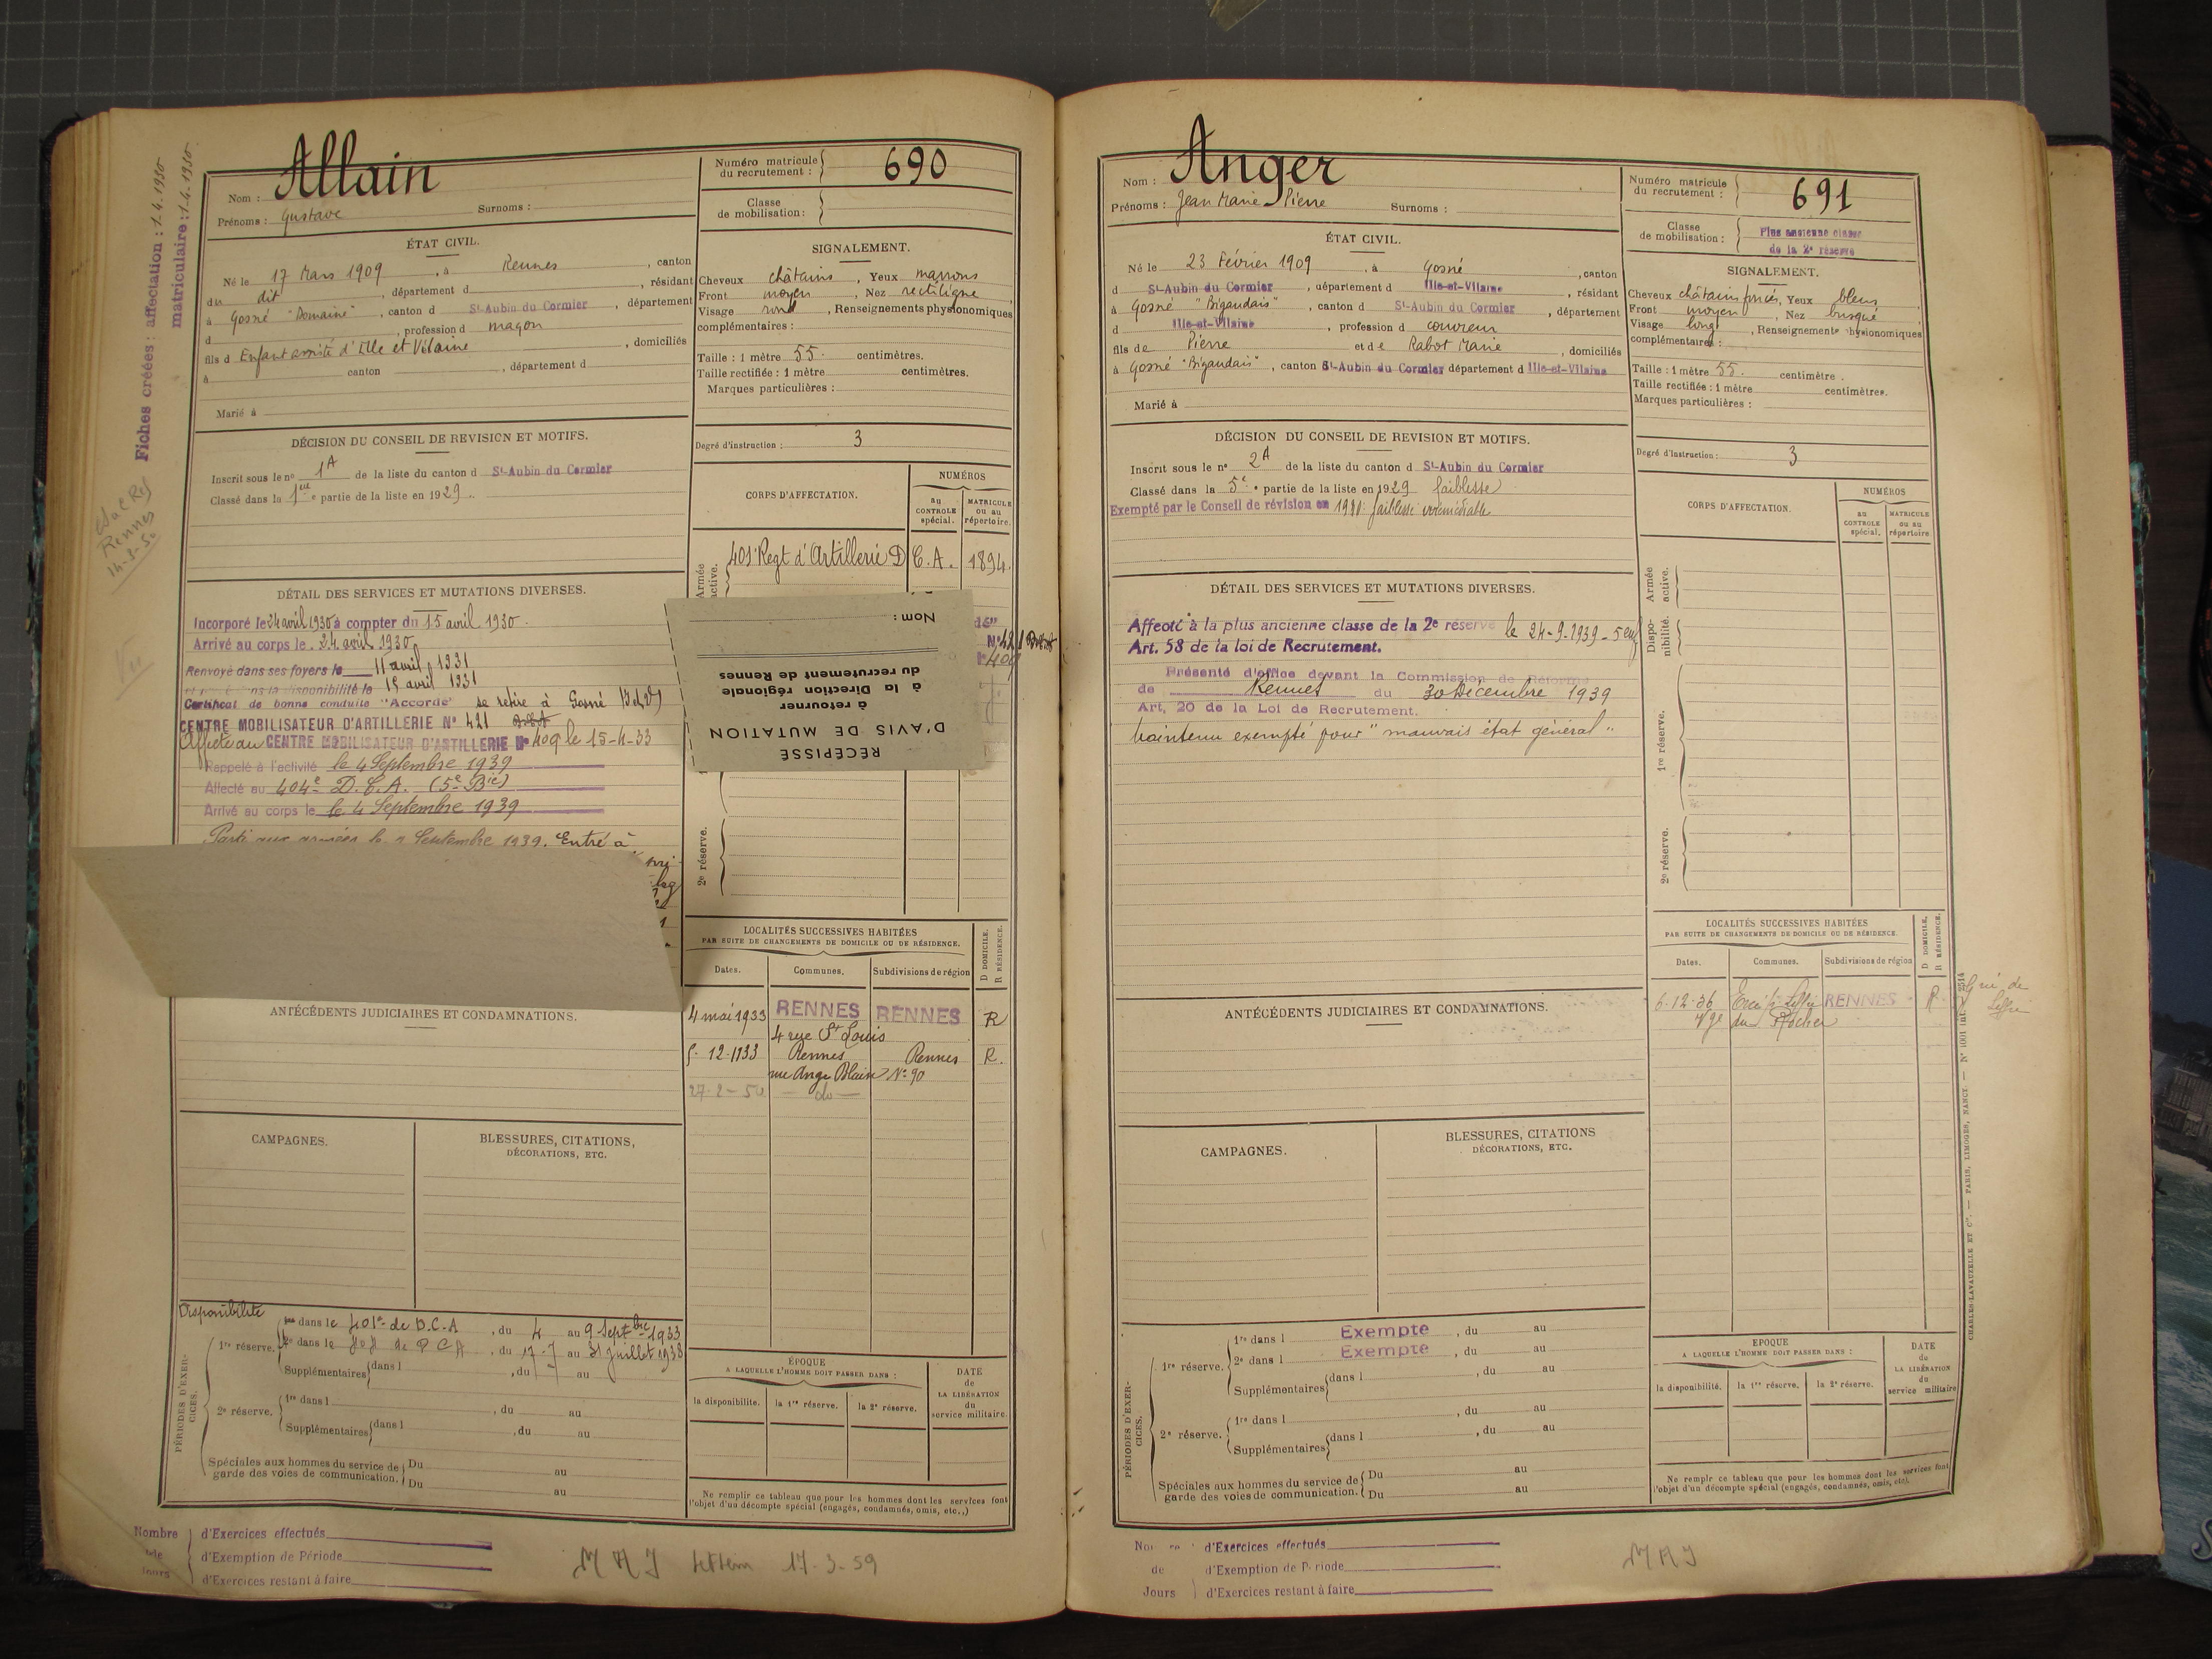 Fiches créées : affectation : 1-4-1930
matriculaire : 1-4-1930
Rennes
14-3-50
Nom : Allain
Prénoms : Gustave Surnoms :
Numéro matricule du recrutement : 690
Classe de mobilisation :
ÉTAT CIVIL.
Né le 17 Mars 1909, à Rennes, canton
du dit, département d , résidant
à Gosné "Domaine", canton d St-Aubin du Cormier, département
d , profession d maçon
fils d Enfant assisté d'Ille et Vilaine , domiciliés
à canton , département d
Marié à
SIGNALEMENT.
Cheveux châtains, Yeux marrons
Front moyen, Nez rectiligne,
Visage rond, Renseignements physionomiques
complémentaires :
Taille : 1 mètre 55 centimètres.
Taille rectifiée : 1 mètre centimètres.
Marques particulières :
Degré d'instruction : 3
DÉCISION DU CONSEIL DE REVISION ET MOTIFS.
Inscrit sous le n° 1A de la liste du canton d St-Aubin du Cormier
Classé dans la 1ère partie de la liste en 1929.
CORPS D'AFFECTATION.
NUMÉROS
au CONTROLE spécial.
MATRICULE ou au répertoire.
Armée active.
401 Regt d'Artillerie D C.A. 1894
DÉTAIL DES SERVICES ET MUTATIONS DIVERSES.
Incorporé le 24 avril 1930 à compter du 15 avril 1930
Arrivé au corps le 24 avril 1930
Renvoyé dans ses foyers le 11 avril 1931
la disponibilité le 15 avril 1931
Certificat de bonne conduite "Accordé" se retire à Gosné
CENTRE MOBILISATEUR D'ARTILLERIE N° 421
Affecté au CENTRE MOBILISATEUR D'ARTILLERIE N° 409 le 15-4-33
Rappelé à l'activité le 4 Septembre 1939
Affecté au 404e D.C.A. (5e Bie)
Arrivé au corps le le 4 Septembre 1939
Parti aux armées le Septembre 1939. Entré à
Nom :
RÉCÉPISSÉ
D'AVIS DE MUTATION
à retourner
à la Direction régionale
du recrutement de Rennes
2e réserve.
LOCALITÉS SUCCESSIVES HABITÉES
PAR SUITE DE CHANGEMENTS DE DOMICILE OU DE RÉSIDENCE.
D DOMICILE.
R RÉSIDENCE.
Dates. Communes. Subdivisions de région
4 mai 1933 RENNES RENNES R
4 rue St Louis
5-12-1933 Rennes Rennes R.
rue Ange Blaize N° 90
27-2-50 do
ANTÉCÉDENTS JUDICIAIRES ET CONDAMNATIONS.
CAMPAGNES.
BLESSURES, CITATIONS,
DÉCORATIONS, ETC.
PÉRIODES D'EXERCICES.
Disponibilité
1re réserve.
dans le 401e de D.C.A, du 4 au 9 Septbre 1933
2e dans le de D C A, du 17-7 au 31 juillet 1938
Supplémentaires dans l , du au
2e réserve.
1re dans l , du au
Supplémentaires dans l , du au
Spéciales aux hommes du service de garde des voies de communication.
Du au
Du au
ÉPOQUE
A LAQUELLE L'HOMME DOIT PASSER DANS :
la disponibilité. la 1re réserve. la 2e réserve.
DATE de LA LIBÉRATION du service militaire
Ne remplir ce tableau que pour les hommes dont les services font
l'objet d'un décompte spécial (engagés, condamnés, omis, etc.,)
Nombre de Jours
d'Exercices effectués
d'Exemption de Période
d'Exercices restant à faire
17-3-59
Nom : Anger
Prénoms : Jean Marie Pierre Surnoms :
Numéro matricule du recrutement : 691
Classe de mobilisation : Plus ancienne classe
de la 2e réserve
ÉTAT CIVIL.
Né le 23 Février 1909, à Gosné, canton
d St-Aubin du Cormier, département d Ille-et-Vilaine, résidant
à Gosné "Bigaudais", canton d St-Aubin du Cormier, département
d Ille-et-Vilaine, profession d couvreur
fils de Pierre et de Rabot Marie, domiciliés
à Gosné "Bigaudais", canton St-Aubin du Cormier département d Ille-et-Vilaine
Marié à
SIGNALEMENT.
Cheveux châtain foncés, Yeux bleus
Front moyen, Nez busqué
Visage long, Renseignements physionomiques
complémentaires :
Taille : 1 mètre 55 centimètre.
Taille rectifiée : 1 mètre centimètres.
Marques particulières :
Degré d'instruction : 3
DÉCISION DU CONSEIL DE REVISION ET MOTIFS.
Inscrit sous le n° 2A de la liste du canton d St-Aubin du Cormier
Classé dans la 5e partie de la liste en 1929 faiblesse
Exempté par le Conseil de révision en faiblesse irrémédiable
CORPS D'AFFECTATION.
NUMÉROS
au CONTROLE spécial.
MATRICULE ou au répertoire
Armée active.
Disponibilité.
1re réserve.
2e réserve.
DÉTAIL DES SERVICES ET MUTATIONS DIVERSES.
Affecté à la plus ancienne classe de la 2e réserve le 24-9-1939
Art. 58 de la loi de Recrutement.
Présenté d'office devant la Commission de Réforme
de Rennes du 30 Décembre 1939
Art. 20 de la Loi de Recrutement.
Maintenu exempté pour "mauvais état général"
LOCALITÉS SUCCESSIVES HABITÉES
PAR SUITE DE CHANGEMENTS DE DOMICILE OU DE RÉSIDENCE.
D DOMICILE.
R RÉSIDENCE.
Dates. Communes. Subdivisions de région
6-12-36 RENNES R
du Rocher
ANTÉCÉDENTS JUDICIAIRES ET CONDAMNATIONS.
CAMPAGNES.
BLESSURES, CITATIONS
DÉCORATIONS, ETC.
PÉRIODES D'EXERCICES.
1re réserve.
1re dans l Exempte, du au
2e dans l Exempte, du au
Supplémentaires dans l , du au
2e réserve.
1re dans l , du au
Supplémentaires dans l , du au
Spéciales aux hommes du service de garde des voies de communication.
Du au
Du au
EPOQUE
A LAQUELLE L'HOMME DOIT PASSER DANS :
la disponibilité. la 1re réserve. la 2e réserve.
DATE de LA LIBÉRATION du service militaire
Ne remplr ce tableau que pour les hommes dont les services font
l'objet d'un décompte spécial (engagés, condamnés, omis, etc).
CHARLES-LAVAUZELLE ET Cie. — PARIS, LIMOGES, NANCY.
de Jours
d'Exercices effectués
d'Exemption de Période
d'Exercices restant à faire